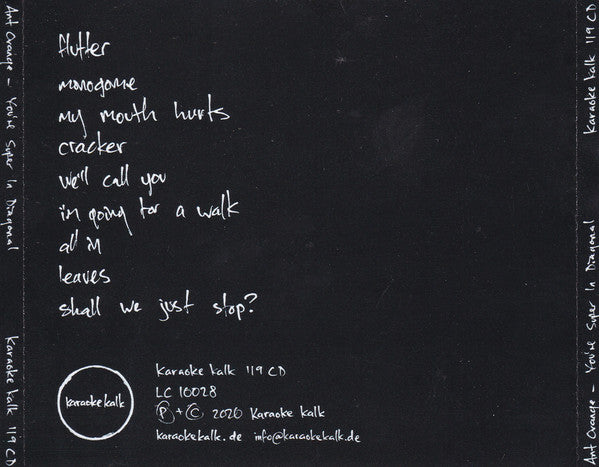 flutter
monogame
my mouth hurts
cracker
we'll call you
im going for a walk
all in
leaves
shall we just stop?
karaoke kalk
Karaoke kalk 119 CD
LC 10028
Ⓟ+© 2020 Karaoke kalk
karaokekalk.de info@karaokekalk.de
Ant Orange – You're Super In Diagonal
Karaoke kalk 119 CD
Karaoke kalk 119 CD
Ant Orange – You're Super In Diagonal